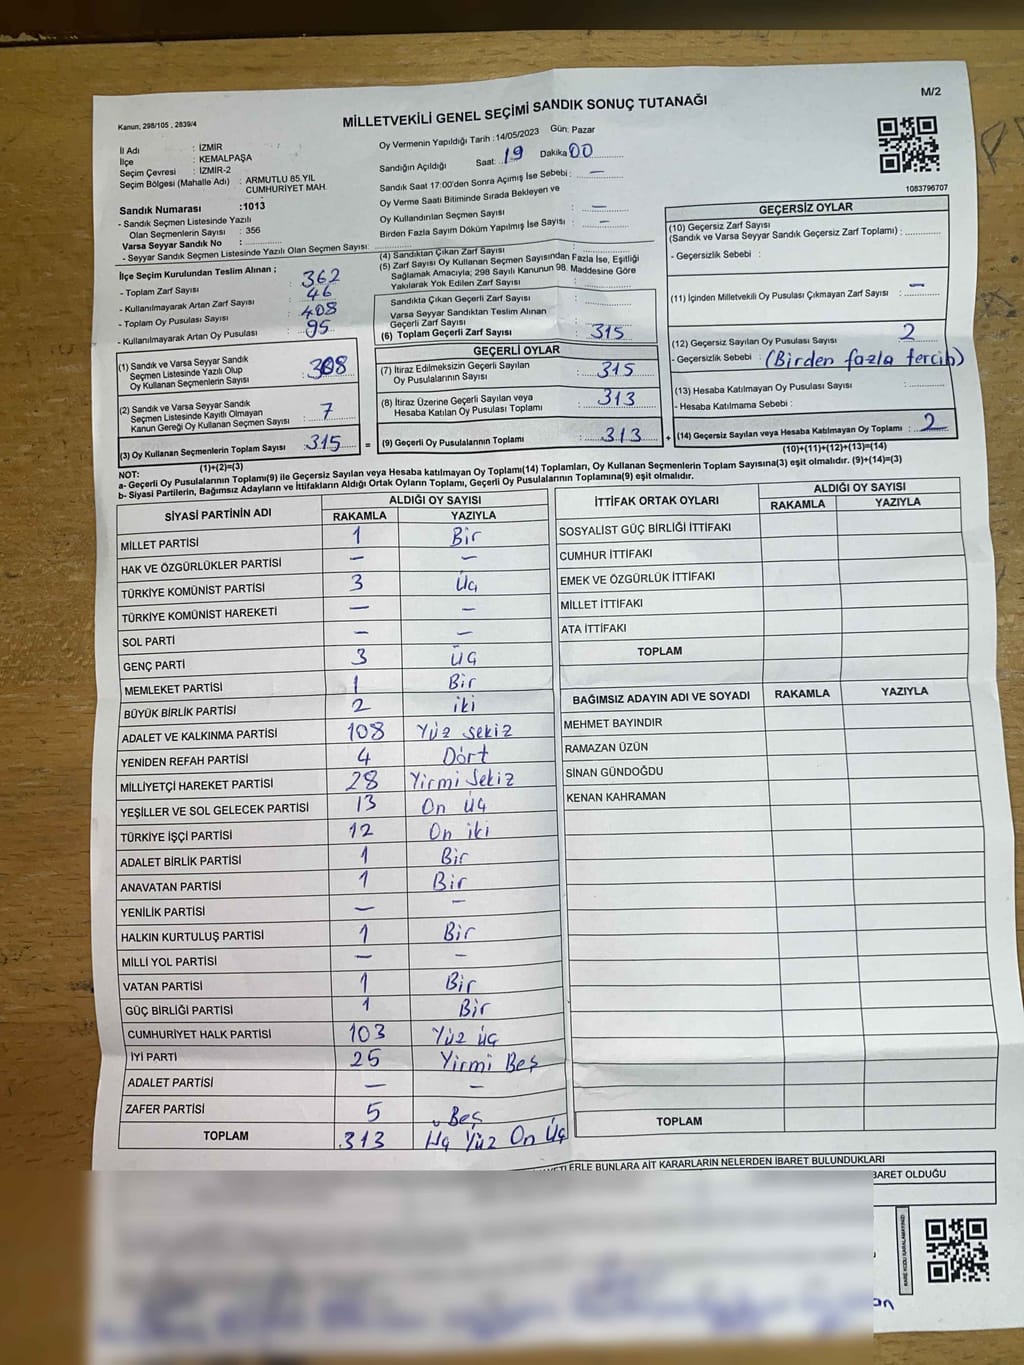 M/2
Kanun, 298/105 , 2839/4
MİLLETVEKİLİ GENEL SEÇİMİ SANDIK SONUÇ TUTANAĞI
İl Adı : İZMİR
İlçe : KEMALPAŞA
Seçim Çevresi : İZMİR-2
Seçim Bölgesi (Mahalle Adı) : ARMUTLU 85.YIL
CUMHURİYET MAH.
Sandık Numarası :1013
- Sandık Seçmen Listesinde Yazılı
Olan Seçmenlerin Sayısı : 356
Varsa Seyyar Sandık No :
- Seyyar Sandık Seçmen Listesinde Yazılı Olan Seçmen Sayısı:
Oy Vermenin Yapıldığı Tarih :14/05/2023 Gün: Pazar
Sandığın Açıldığı Saat: 19 Dakika 00
Sandık Saat 17:00'den Sonra Açımış İse Sebebi : —
Oy Verme Saati Bitiminde Sırada Bekleyen ve
Oy Kullandırılan Seçmen Sayısı : —
Birden Fazla Sayım Döküm Yapılmış İse Sayısı : —
1083796707
İlçe Seçim Kurulundan Teslim Alınan ;
- Toplam Zarf Sayısı : 362
- Kullanılmayarak Artan Zarf Sayısı : 46
- Toplam Oy Pusulası Sayısı : 408
- Kullanılmayarak Artan Oy Pusulası : 95
(1) Sandık ve Varsa Seyyar Sandık
Seçmen Listesinde Yazılı Olup
Oy Kullanan Seçmenlerin Sayısı : 308
(2) Sandık ve Varsa Seyyar Sandık
Seçmen Listesinde Kayıtlı Olmayan
Kanun Gereği Oy Kullanan Seçmen Sayısı : 7
(3) Oy Kullanan Seçmenlerin Toplam Sayısı : 315
(1)+(2)=(3)
(4) Sandıktan Çıkan Zarf Sayısı :
(5) Zarf Sayısı Oy Kullanan Seçmen Sayısından Fazla İse, Eşitliği
Sağlamak Amacıyla; 298 Sayılı Kanunun 98. Maddesine Göre
Yakılarak Yok Edilen Zarf Sayısı :
Sandıkta Çıkan Geçerli Zarf Sayısı :
Varsa Seyyar Sandıktan Teslim Alınan
Geçerli Zarf Sayısı :
(6) Toplam Geçerli Zarf Sayısı : 315
GEÇERLİ OYLAR
(7) İtiraz Edilmeksizin Geçerli Sayılan
Oy Pusulalarının Sayısı : 315
(8) İtiraz Üzerine Geçerli Sayılan veya
Hesaba Katılan Oy Pusulası Toplamı : 313
= (9) Geçerli Oy Pusulalarının Toplamı : 313 +
GEÇERSİZ OYLAR
(10) Geçersiz Zarf Sayısı
(Sandık ve Varsa Seyyar Sandık Geçersiz Zarf Toplamı) :
- Geçersizlik Sebebi :
(11) İçinden Milletvekili Oy Pusulası Çıkmayan Zarf Sayısı : —
(12) Geçersiz Sayılan Oy Pusulası Sayısı : 2
- Geçersizlik Sebebi : (Birden fazla tercih)
(13) Hesaba Katılmayan Oy Pusulası Sayısı :
- Hesaba Katılmama Sebebi :
(14) Geçersiz Sayılan veya Hesaba Katılmayan Oy Toplamı : 2
(10)+(11)+(12)+(13)=(14)
NOT:
a- Geçerli Oy Pusulalarının Toplamı(9) ile Geçersiz Sayılan veya Hesaba katılmayan Oy Toplamı(14) Toplamları, Oy Kullanan Seçmenlerin Toplam Sayısına(3) eşit olmalıdır. (9)+(14)=(3)
b- Siyasi Partilerin, Bağımsız Adayların ve İttifakların Aldığı Ortak Oyların Toplamı, Geçerli Oy Pusulalarının Toplamına(9) eşit olmalıdır.
SİYASİ PARTİNİN ADI ALDIĞI OY SAYISI
RAKAMLA YAZIYLA
MİLLET PARTİSİ 1 Bir
HAK VE ÖZGÜRLÜKLER PARTİSİ — —
TÜRKİYE KOMÜNİST PARTİSİ 3 Üç
TÜRKİYE KOMÜNİST HAREKETİ — —
SOL PARTİ — —
GENÇ PARTİ 3 Üç
MEMLEKET PARTİSİ 1 Bir
BÜYÜK BİRLİK PARTİSİ 2 iki
ADALET VE KALKINMA PARTİSİ 108 Yüz sekiz
YENİDEN REFAH PARTİSİ 4 Dört
MİLLİYETÇİ HAREKET PARTİSİ 28 Yirmi Sekiz
YEŞİLLER VE SOL GELECEK PARTİSİ 13 On üç
TÜRKİYE İŞÇİ PARTİSİ 12 On iki
ADALET BİRLİK PARTİSİ 1 Bir
ANAVATAN PARTİSİ 1 Bir
YENİLİK PARTİSİ — —
HALKIN KURTULUŞ PARTİSİ 1 Bir
MİLLİ YOL PARTİSİ — —
VATAN PARTİSİ 1 Bir
GÜÇ BİRLİĞİ PARTİSİ 1 Bir
CUMHURİYET HALK PARTİSİ 103 Yüz üç
İYİ PARTİ 25 Yirmi Beş
ADALET PARTİSİ — —
ZAFER PARTİSİ 5 Beş
TOPLAM 313 Üç Yüz On Üç
İTTİFAK ORTAK OYLARI ALDIĞI OY SAYISI
RAKAMLA YAZIYLA
SOSYALİST GÜÇ BİRLİĞİ İTTİFAKI
CUMHUR İTTİFAKI
EMEK VE ÖZGÜRLÜK İTTİFAKI
MİLLET İTTİFAKI
ATA İTTİFAKI
TOPLAM
BAĞIMSIZ ADAYIN ADI VE SOYADI RAKAMLA YAZIYLA
MEHMET BAYINDIR
RAMAZAN ÜZÜN
SİNAN GÜNDOĞDU
KENAN KAHRAMAN
TOPLAM
ERLE BUNLARA AİT KARARLARIN NELERDEN İBARET BULUNDUKLARI
BARET OLDUĞU
KARE KODU KARALAMAYINIZ!
an